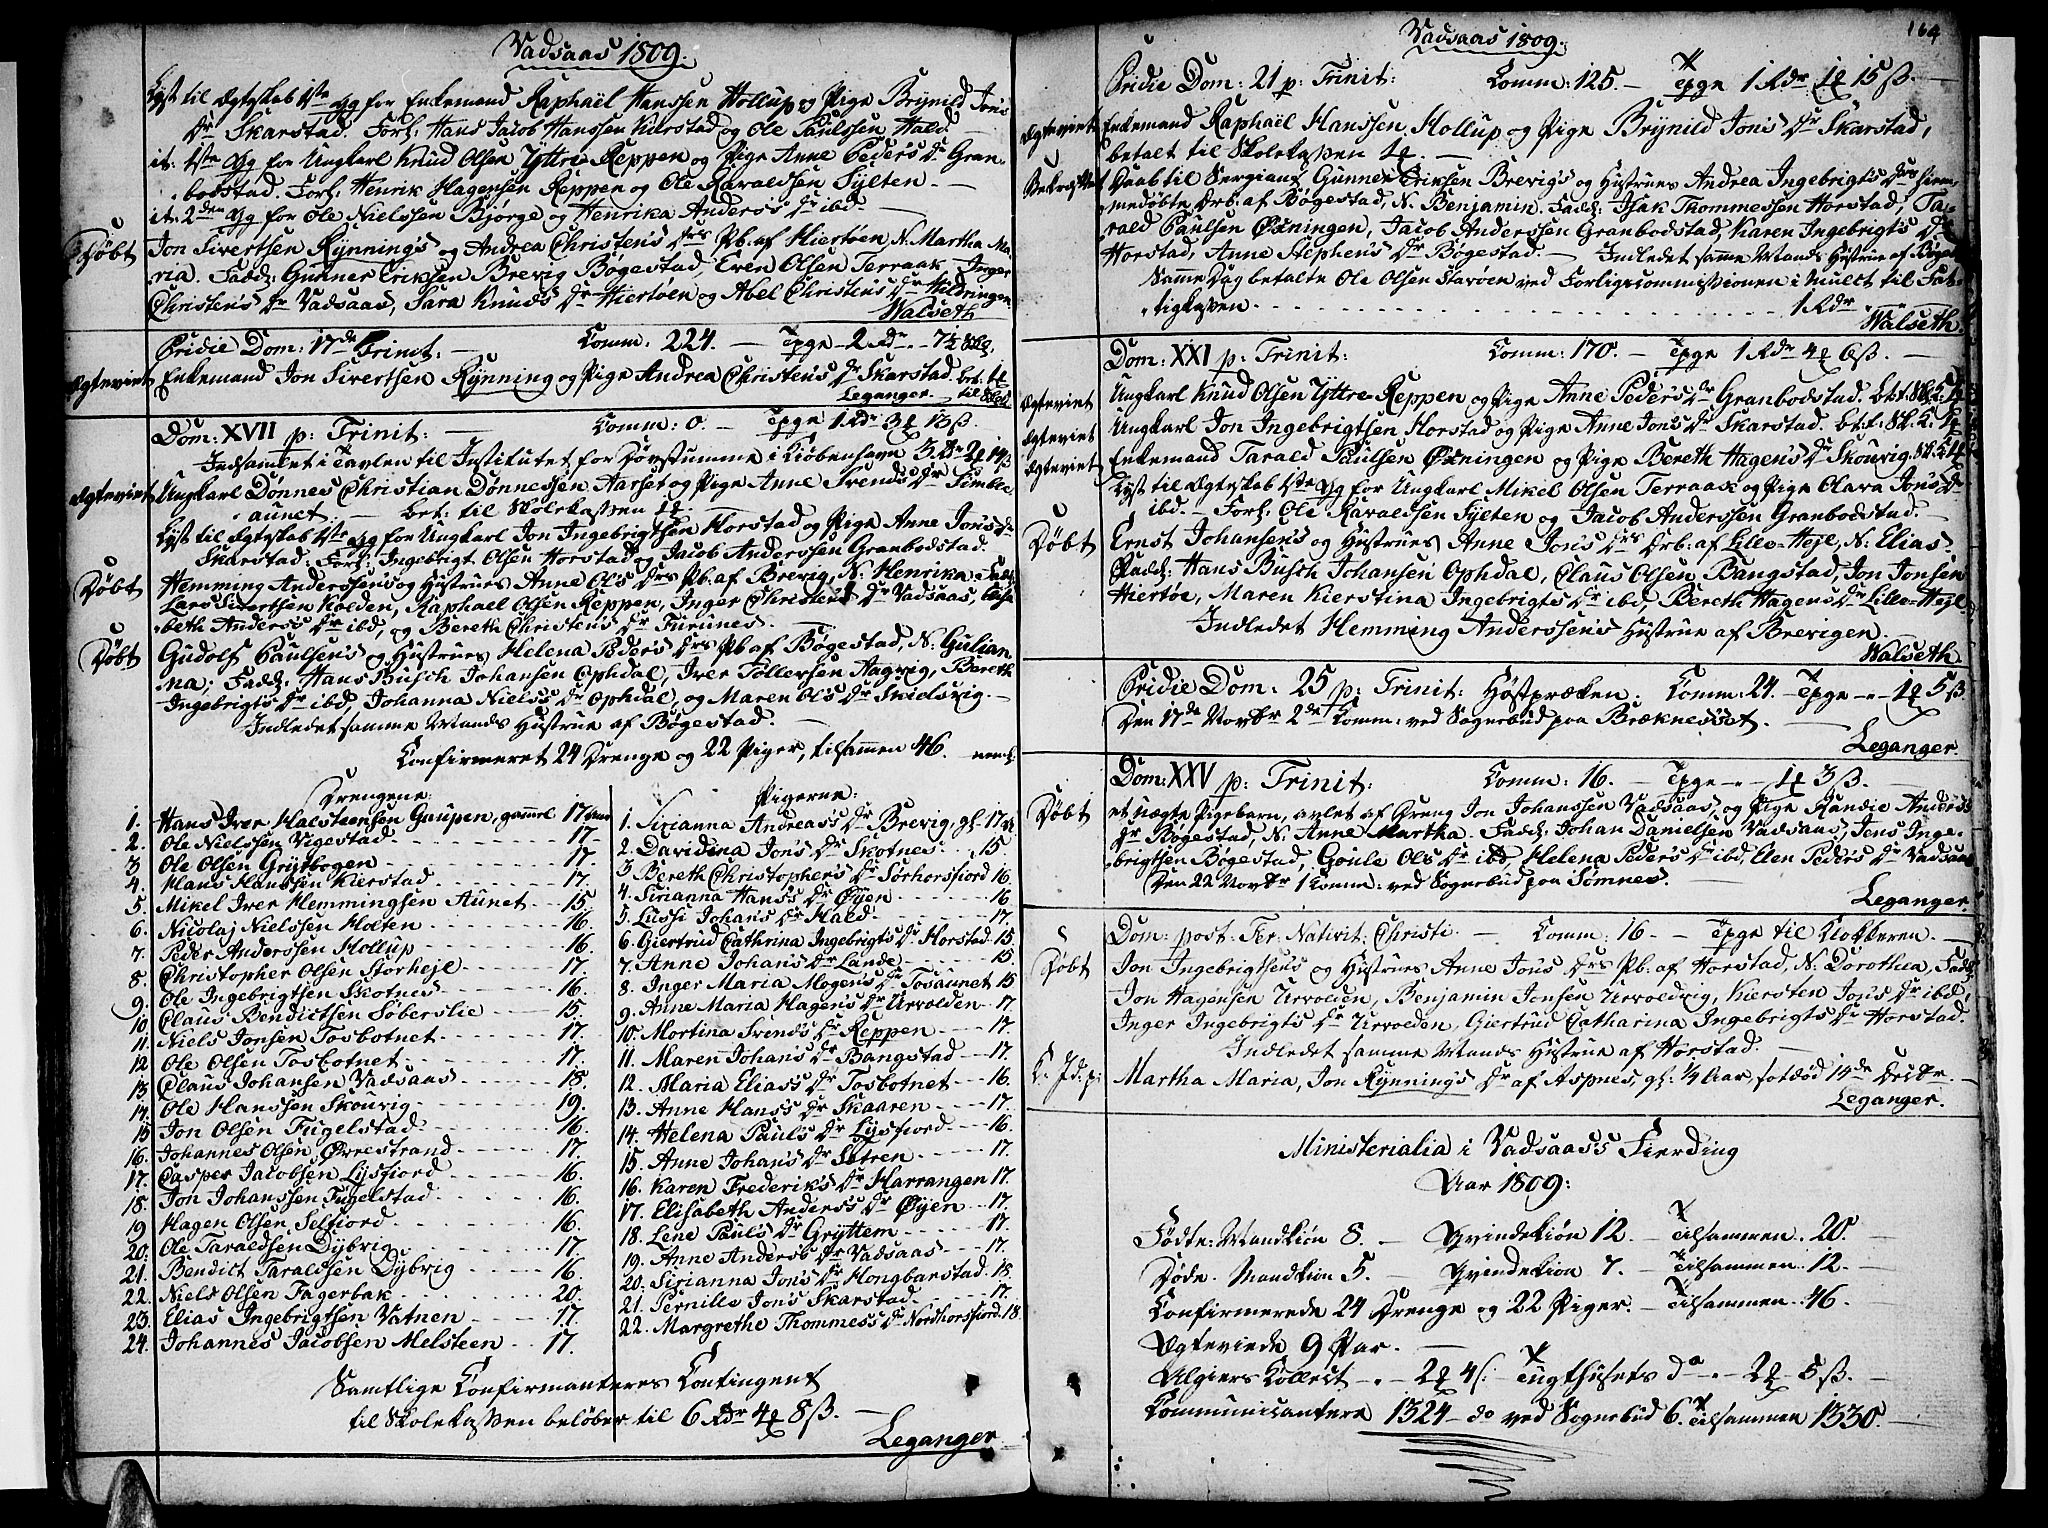 Vadsaas 1809.
Lyst til Ægteskab 1ste Gg for Enkemand Raphaël Hanssen Hollup og Pige Brynild Jons
Dr Skarstad. Forl: Hans Jacob Hanssen Kierstad og Ole Paulssen Hald.
it: 1ste Gg for Ungkarl Knud Olsen Yttre-Reppen og Pige Anne Peders Dr Gran-
bodstad. Forl: Henrik Hagensen Reppen og Ole Haraldsen Sylten.
it: 2den Gg for Ole Nielssen Bjørge og Henrika Anders's Dr ibd.
Døbt Jon Sivertsen Rynning's og Andrea Christen's Drs Pb. af Hiertøen, N. Martha Ma-
ria. Fadd: Gunner Eriksen Brevig Bøgestad, Even Olsen Terraak Inger
Christen's Dr Vadsaas, Sara Knud's Dr Hiertøen og Abel Christen's Dr Hildringen
Walseth
Pridie Dom: 17de Trinit: Comm: 224. Tpge 2 Rdr 7½ Skg.
Ægteviet Enkemand Jon Sivertsen Rynning og Pige Andrea Christen's Dr Skarstad. bet. 1
Leganger. til Skol
Dom: XVII p: Trinit: Comm: 0. Tpge 1 Rdr 3 13ß
Indsamlet i Tavlen til Institutet for Døvstumme i Kiøbenhavn 3 Rdr 2 14ß
Ægteviet Ungkarl Dønnes Christian Dønnessen Aarset og Pige Anne Svends Dr Simle-
aunet. bet: til Skolekassen 1
Lyst til Ægteskab 1ste Gg for Ungkarl Jon Ingebrigtsen Horstad og Pige Anne Jons Dr
Skarstad: Forl: Ingebrigt Olsen Horstad og Jacob Anderssen Granbodstad.
Døbt Hemming Anderssen's og Hustrues Anne Ols Drs Pb. af Brevig, N: Henrika. Fadd:
Lars Sivertsen Kolden, Raphael Olsen Reppen, Inger Christens Dr Vadsaas, Elisa-
beth Anders's Dr ibd, og Bereth Christen's Dr Furunes.
Døbt Gudolf Paulsen's og Hustrues Helena Peders Drs Pb af Bøgestad, N: Gulian-
na, Fadd: Hans Busch Johansen Ophdal, Iver Tollefsen Aagvig, Bereth
Ingebrigts Dr ibd, Johanna Niels's Dr Ophdal, og Maren Ols Dr Skielsvig.
Indledet samme Mands Hustrue af Bøgestad.
Confirmeret 24 Drenge og 22 Piger, tilsammen 46. neml:
Drengene:
1. Hans Iver Halsteensen Gaupen, gammel 17 Aar
2. Ole Nielssen Vigestad 17
3 Ole Olsen Grytbogen 17
4. Hans Hanssen Kierstad 17.
5. Mikel Iver Hemmingsen Aunet 15.
6. Nicolaj Nielssen Holten 16.
7. Peder Anderssen Hollup 16.
8. Christopher Olsen Storhejl 17.
9. Ole Ingebrigtsen Skotnes 16.
10. Claus Bendictsen Søberslie 15.
11. Niels Jonsen Tosbotnet 17.
12 Ole Olsen Tosbotnet 17.
13. Claus Johansen Vadsaas 18.
14. Ole Hanssen Skouvig 19.
15 Jon Olsen Fugelstad 16.
16. Johannes Olsen Ørrestrand 17.
17. Casper Jacobsen Lysfiord 16.
18. Jon Johanssen Fugelstad 16.
19 Hagen Olsen Selfiord 16.
20. Ole Taraldsen Dybvig 17.
21. Bendict Taraldsen Dybvig 16.
22. Niels Olsen Fagerbak 20.
23. Elias Ingebrigtsen Vatnen 17.
24. Johannes Jacobsen Melsteen 17.
Pigerne:
1. Sirianna Andreas's Dr Brevig, gl. 17 Ar
2. Davidina Jon's Dr Skotnes 15.
3 Bereth Christophers Dr Sørhorsfiord 16
4. Sirianna Hans's Dr Øyen 16
5. Lussi Johan's Dr Hald 17.
6. Giertrud Cathrina Ingebrigts Dr Horstad 15.
7. Anne Johan's Dr Lande 15.
8. Inger Maria Mogens Dr Tosaunet 15
9. Anne Maria Hagens Dr Urvolden 17.
10. Mortina Svends Dr Reppen 17.
11. Maren Johan's Dr Bangstad 17.
12. Maria Elias's Dr Tosbotnet 16.
13. Anne Hans's Dr Skaaren 17.
14. Helena Paul's Dr Lysfiord 16.
15. Anne Johan's Dr Setren 17.
16. Karen Frederik's Dr Harrangen 17.
17. Elisabeth Anders's Dr Øyen 17.
18. Lene Paul's Dr Gryttem 17.
19. Anne Anders's Dr Vadsaas 17.
20. Sirianna Jon's Dr Hongbarstad 18.
21. Pernille Jon's Skarstad 17.
22. Margrethe Thommes's Dr Nordhorsfiord 18
Samtlige Confirmanteres Contingent
til Skolekassen beløber til 6 Rdr 4 8ß.
Leganger
164
Vadsaas 1809.
Pridie Dom: 21 p: Trinit: Comm: 125. Tpge 1 Rdr 1 15ß.
Ægteviet Enkemand Raphaël Hanssen Hollup og Pige Brynild Jons Dr Skarstad,
betalt til Skolekassen 1
Bekræftet Daab til Sergiant Gunner Eriksen Brevig's og Hustrues Andrea Ingebrigts Drs hiem-
medøbte Drb. af Bøgestad, N. Benjamin. Fadd: Isak Thommessen Horstad, Ta-
rald Paulsen Øxningen, Jacob Anderssen Granbodstad, Karen Ingebrigts Dr
Horstad, Anne Stephens Dr Bøgestad. Indledet samme Mands Hustrue af Bøgest
Samme Dag betalte Ole Olsen Starøen ved Forligscommissionen i Mulct til Fat-
tigkassen 1 Rdr
Walseth.
Dom: XXI p: Trinit: Comm: 170. Tpge 1 Rdr 4 6ß.
Ægteviet Ungkarl Knud Olsen Yttre-Reppen og Pige Anne Peders Dr Granbodstad. bet. Sk. K. 1
Ægteviet Ungkarl Jon Ingebrigtsen Horstad og Pige Anne Jons Dr Skarstad. bet. t. Sk. K. 1
Ægteviet Enkemand Tarald Paulsen Øxningen og Pige Bereth Hagens Dr Skouvig. Sk. K. 1
Lyst til Ægteskab 1ste Gg for Ungkarl Mikel Olsen Terraak og Pige Olava Jons Dr
ibd. Forl: Ole Haraldsen Sylten og Jacob Anderssen Granbodstad.
Døbt Ernst Johansen's og Hustrues Anne Jon's Drs Drb: af Lille-Hejl, N: Elias.
Fadd: Hans Busch Johansen Ophdal, Claus Olsen Bangstad, Jon Jonsen
Hiertøe, Maren Kierstina Ingebrigts Dr ibd, Bereth Hagens Dr Lille-Hejl
Indledet Hemming Anderssen's Hustrue af Brevigen.
Walseth.
Pridie Dom: 25 p: Trinit: Høstpræken. Comm: 24. Tpge 1 5ß
Den 17de Novbr 2de Comm: ved Sognebud paa Bræknesset.
Leganger.
Dom: XXV p: Trinit: Comm: 16. Tpge 1 3ß.
Døbt et uægte Pigebarn, avlet af Dreng Jon Johanssen Vadsaas, og Pige Randie Anders's
Dr Bøgestad, N. Anne Martha. Fadd: Johan Danielsen Vadsaas, Jens Inge-
brigtsen Bøgestad, Goule Ols Dr ibd, Helena Peders Dr ibd, Elen Peders Dr Vadsaas
Den 22 Novbr 1 Comm: ved Sognebud paa Sømnes.
Leganger.
Dom: post. Fer. Nativit: Christi. Comm: 16. Tpge til Klokkeren.
Døbt Jon Ingebrigtsen's og Hustrues Anne Jons Drs Pb. af Horstad, N: Dorothea, Fadd:
Jon Hagensen Urvolden, Benjamin Jonsen Urvoldvig, Kiersten Jons Dr ibd,
Inger Ingebrigts Dr Urvolden, Giertrud Catharina Ingebrigts Dr Horstad.
Indledet samme Mands Hustrue af Horstad.
K: Jd: p: Martha Maria, Jon Rynning's Dr af Aspnes, gl: ¼ Aar, sotdød 14de Decbr.
Leganger.
Ministerialia i Vadsaas's Fierding
Aar 1809:
Fødte: Mandkiøn 8. Qvindekiøn 12. Tilsammen 20.
Døde. Mandkiøn 5. Qvindekiøn 7. Tilsammen 12.
Confirmerede 24 Drenge og 22 Piger. Tilsammen 46.
Ægteviede 9 Par.
Algiers Collect 2 4 Tugthusets do 2 5ß.
Communicantere 1324 do ved Sognebud 6. Tilsammen 1330.